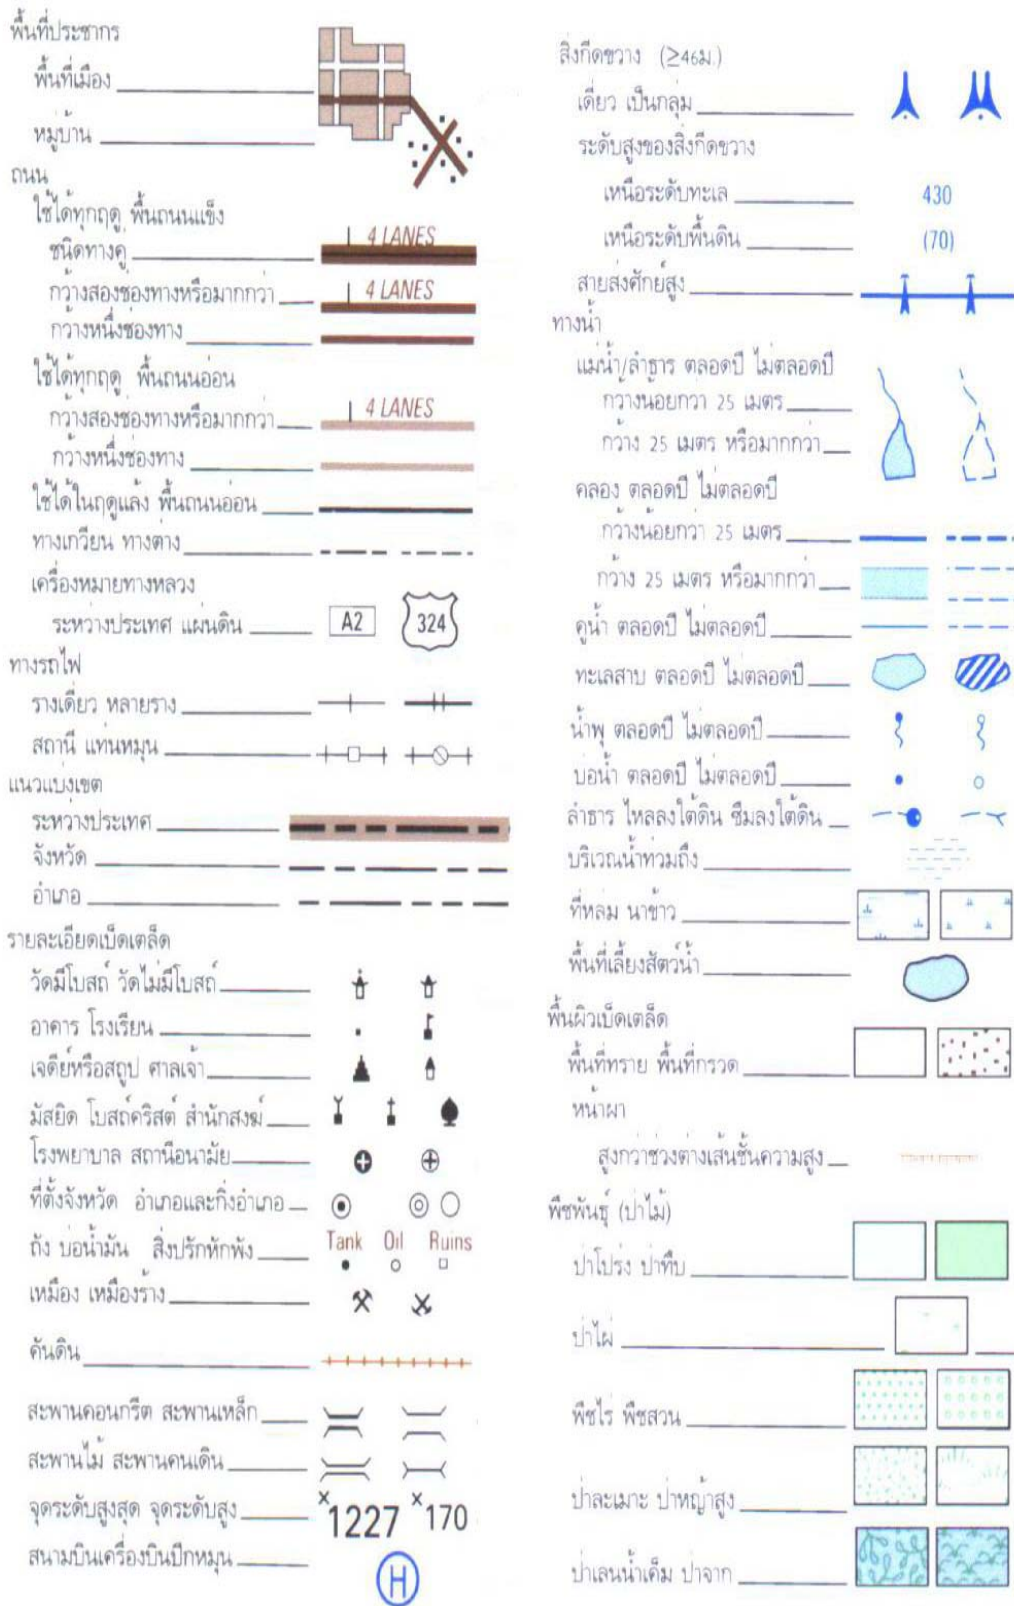 พื้นที่ประชากร
พื้นที่เมือง
หมู่บ้าน
ถนน
ใช้ได้ทุกฤดู พื้นถนนแข็ง
ชนิดทางคู่ 4 LANES
กว้างสองช่องทางหรือมากกว่า 4 LANES
กว้างหนึ่งช่องทาง
ใช้ได้ทุกฤดู พื้นถนนอ่อน
กว้างสองช่องทางหรือมากกว่า 4 LANES
กว้างหนึ่งช่องทาง
ใช้ได้ในฤดูแล้ง พื้นถนนอ่อน
ทางเกวียน ทางต่าง
เครื่องหมายทางหลวง
ระหว่างประเทศ แผ่นดิน A2 324
ทางรถไฟ
รางเดี่ยว หลายราง
สถานี แท่นหมุน
แนวแบ่งเขต
ระหว่างประเทศ
จังหวัด
อำเภอ
รายละเอียดเบ็ดเตล็ด
วัดมีโบสถ์ วัดไม่มีโบสถ์
อาคาร โรงเรียน
เจดีย์หรือสถูป ศาลเจ้า
มัสยิด โบสถ์คริสต์ สำนักสงฆ์
โรงพยาบาล สถานีอนามัย
ที่ตั้งจังหวัด อำเภอและกิ่งอำเภอ
ถัง บ่อน้ำมัน สิ่งปรักหักพัง Tank Oil Ruins
เหมือง เหมืองร้าง
คันดิน
สะพานคอนกรีต สะพานเหล็ก
สะพานไม้ สะพานคนเดิน
จุดระดับสูงสุด จุดระดับสูง 1227 170
สนามบินเครื่องบินปีกหมุน H
สิ่งกีดขวาง (≥46ม.)
เดี่ยว เป็นกลุ่ม
ระดับสูงของสิ่งกีดขวาง
เหนือระดับทะเล 430
เหนือระดับพื้นดิน (70)
สายส่งศักย์สูง
ทางน้ำ
แม่น้ำ/ลำธาร ตลอดปี ไม่ตลอดปี
กว้างน้อยกว่า 25 เมตร
กว้าง 25 เมตร หรือมากกว่า
คลอง ตลอดปี ไม่ตลอดปี
กว้างน้อยกว่า 25 เมตร
กว้าง 25 เมตร หรือมากกว่า
คูน้ำ ตลอดปี ไม่ตลอดปี
ทะเลสาบ ตลอดปี ไม่ตลอดปี
น้ำพุ ตลอดปี ไม่ตลอดปี
บ่อน้ำ ตลอดปี ไม่ตลอดปี
ลำธาร ไหลลงใต้ดิน ซึมลงใต้ดิน
บริเวณน้ำท่วมถึง
ที่หล่ม นาข้าว
พื้นที่เลี้ยงสัตว์น้ำ
พื้นผิวเบ็ดเตล็ด
พื้นที่ทราย พื้นที่กรวด
หน้าผา
สูงกว่าช่วงต่างเส้นชั้นความสูง
พืชพันธุ์ (ป่าไม้)
ป่าโปร่ง ป่าทึบ
ป่าไผ่
พืชไร่ พืชสวน
ป่าละเมาะ ป่าหญ้าสูง
ป่าเลนน้ำเค็ม ป่าจาก